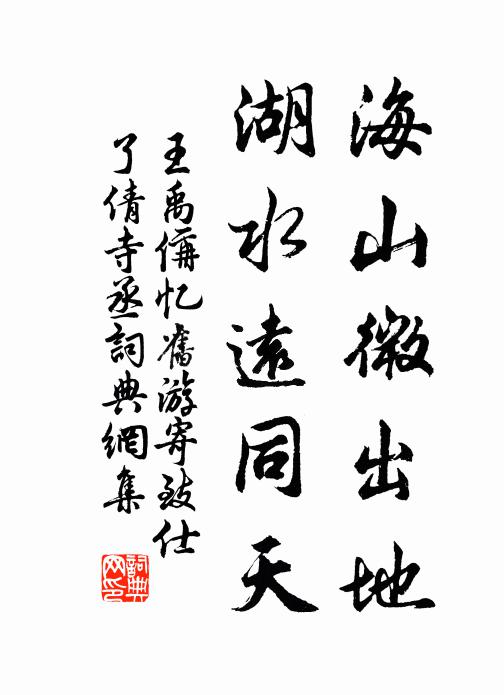 海山微出地
湖水遠同天
王禹偁忆舊游寄致仕
了倩寺丞詞典網集
詞典網印